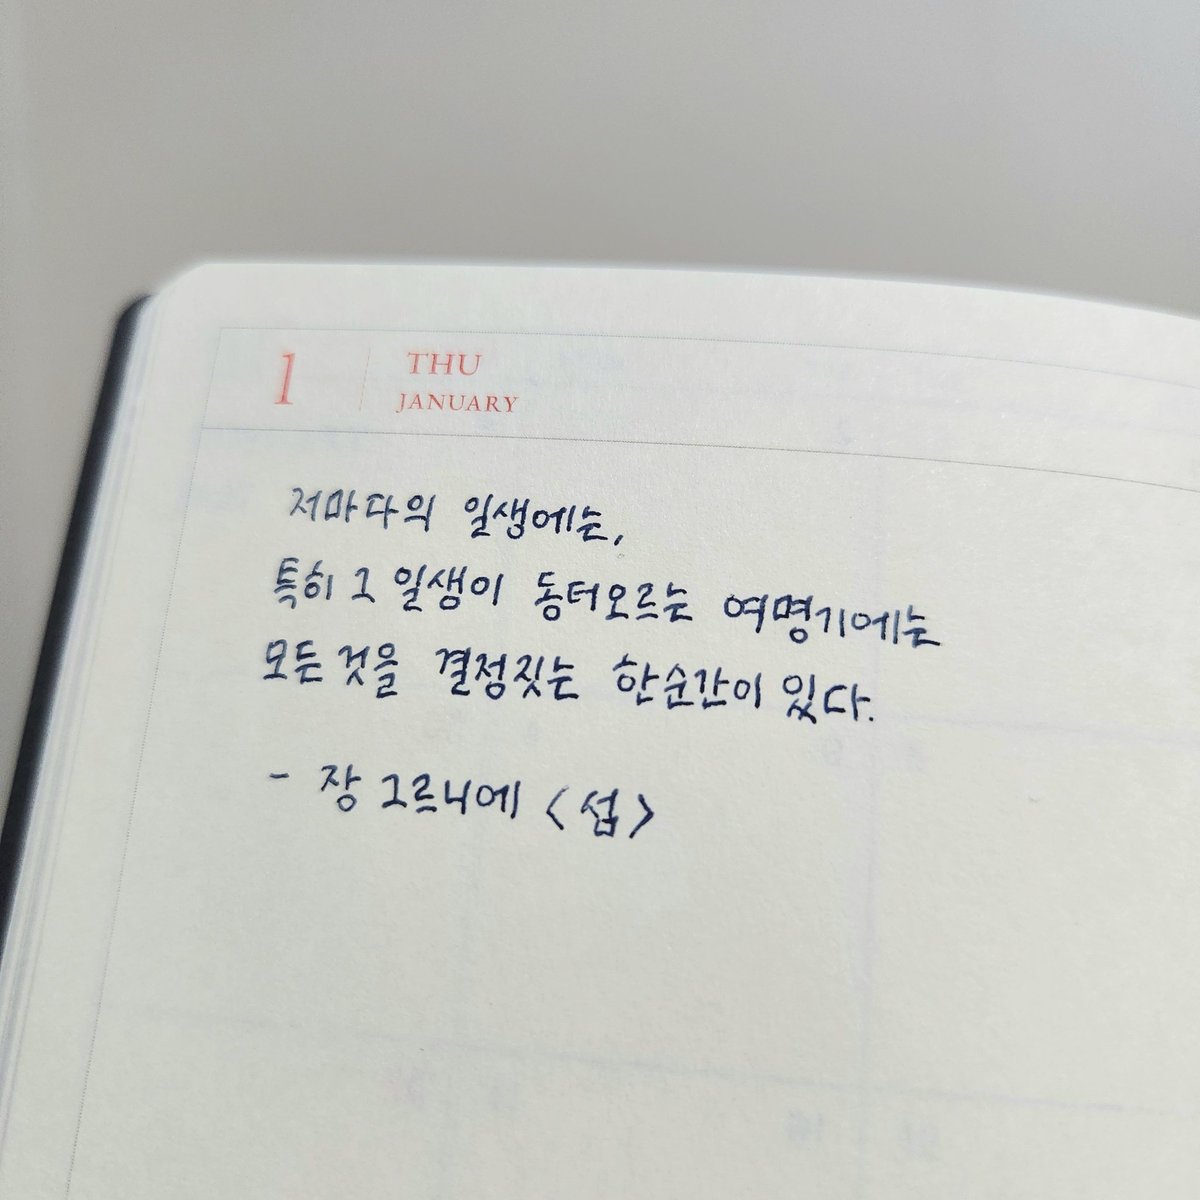 1
THU
JANUARY
저마다의 일생에는,
특히 그 일생이 동터오르는 여명기에는
모든 것을 결정짓는 한순간이 있다.
- 장 그르니에 <섬>